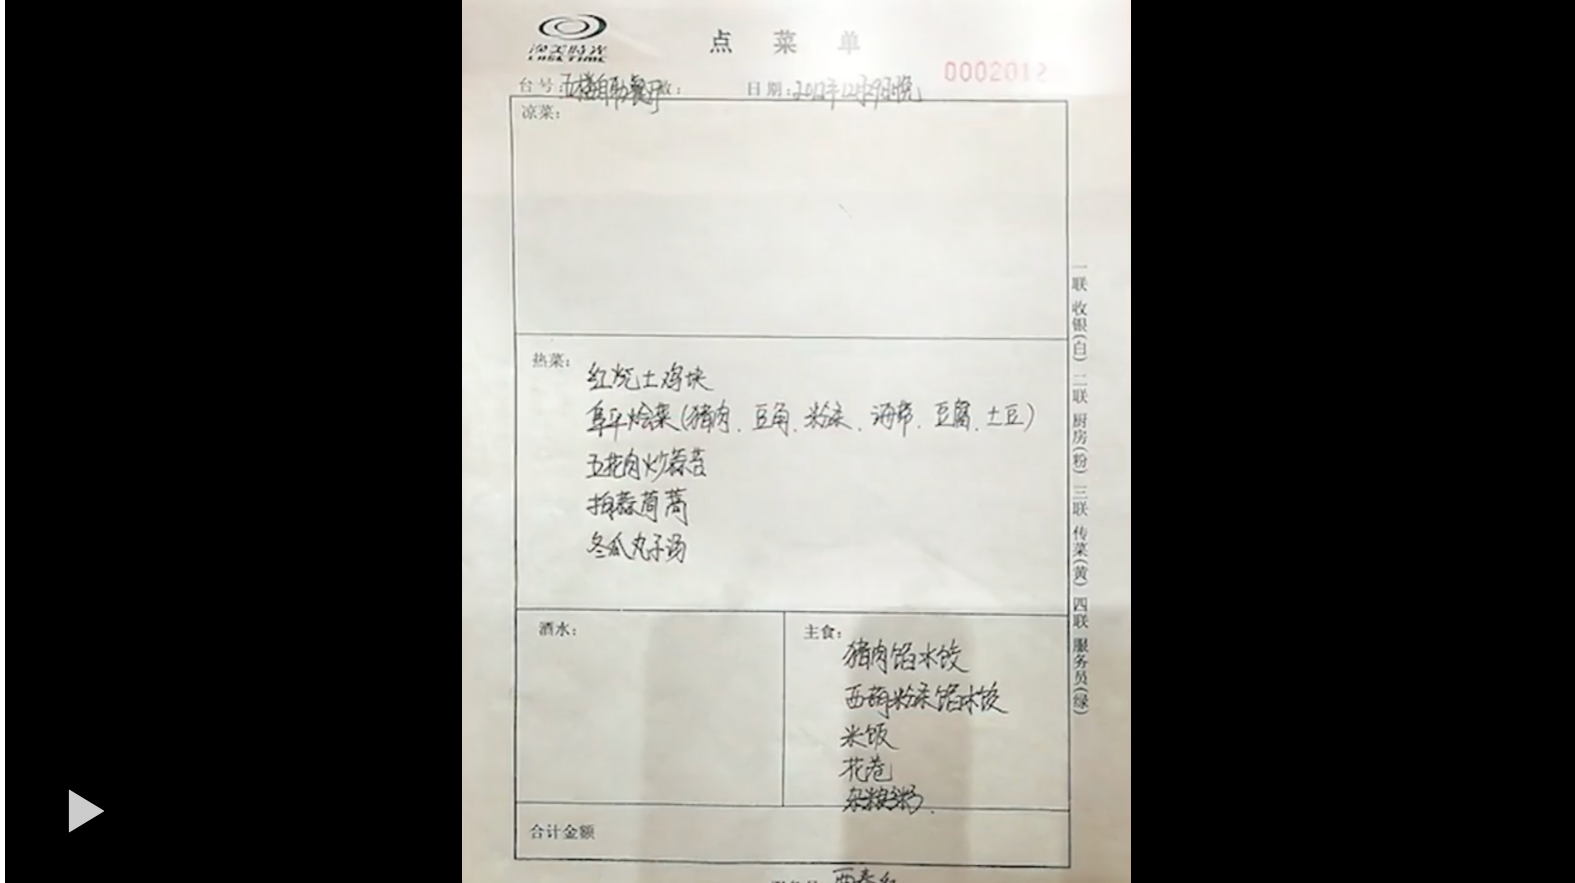 LOSE TIME
点菜单
0002012
台号:五楼自助餐厅
日期:2012年12月29日晚
凉菜:
热菜:
红烧土鸡块
阜平烩菜(猪肉、豆角、粉条、海带、豆腐、土豆)
五花肉炒蒜苔
拍蒜茼蒿
冬瓜丸子汤
酒水:
主食:
猪肉馅水饺
西葫粉条馅水饺
米饭
花卷
杂粮粥.
合计金额
一联 收银(白) 二联 厨房(粉) 三联 传菜(黄) 四联 服务员(绿)